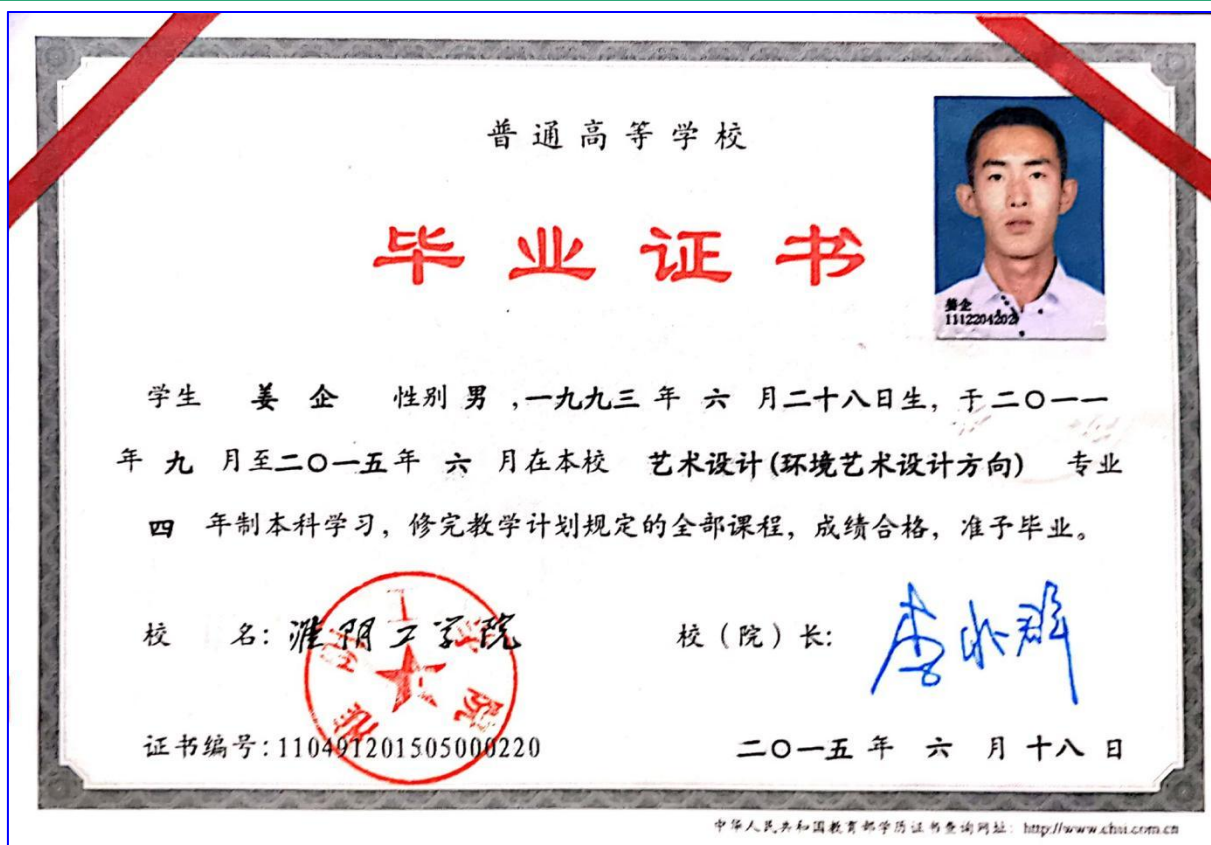 普通高等学校
毕业证书
姜企
1112204202
学生 姜企 性别 男，一九九三年 六 月二十八日生，于二〇一一
年 九 月至二〇一五年 六 月在本校 艺术设计(环境艺术设计方向) 专业
四 年制本科学习，修完教学计划规定的全部课程，成绩合格，准予毕业。
校 名：淮阴工学院 校（院）长：
证书编号：110491201505000220 二〇一五年 六 月 十八 日
中华人民共和国教育部学历证书查询网址：http://www.chsi.com.cn